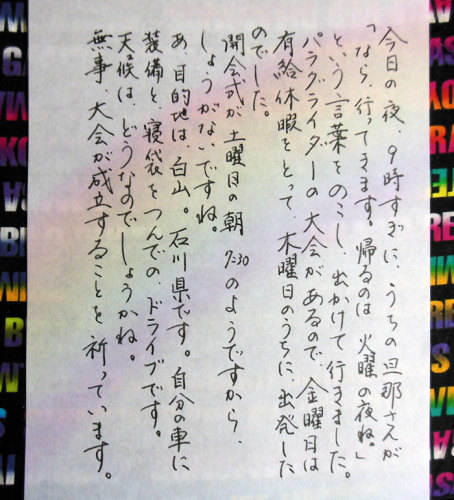 今日の夜、9時すぎに、うちの旦那さんが
「なら、行ってきます。帰るのは火曜の夜ね。」
という言葉をのこし、出かけて行きました。
パラグライダーの大会があるので、金曜日は
有給休暇をとって、木曜日のうちに出発した
のでした。
開会式が土曜日の朝7:30のようですから、
しょうがないですね。
あ、目的地は、白山。石川県です。自分の車に
装備と、寝袋をつんでの、ドライブです。
天候は、どうなのでしょうかね。
無事、大会が成立することを祈っています。